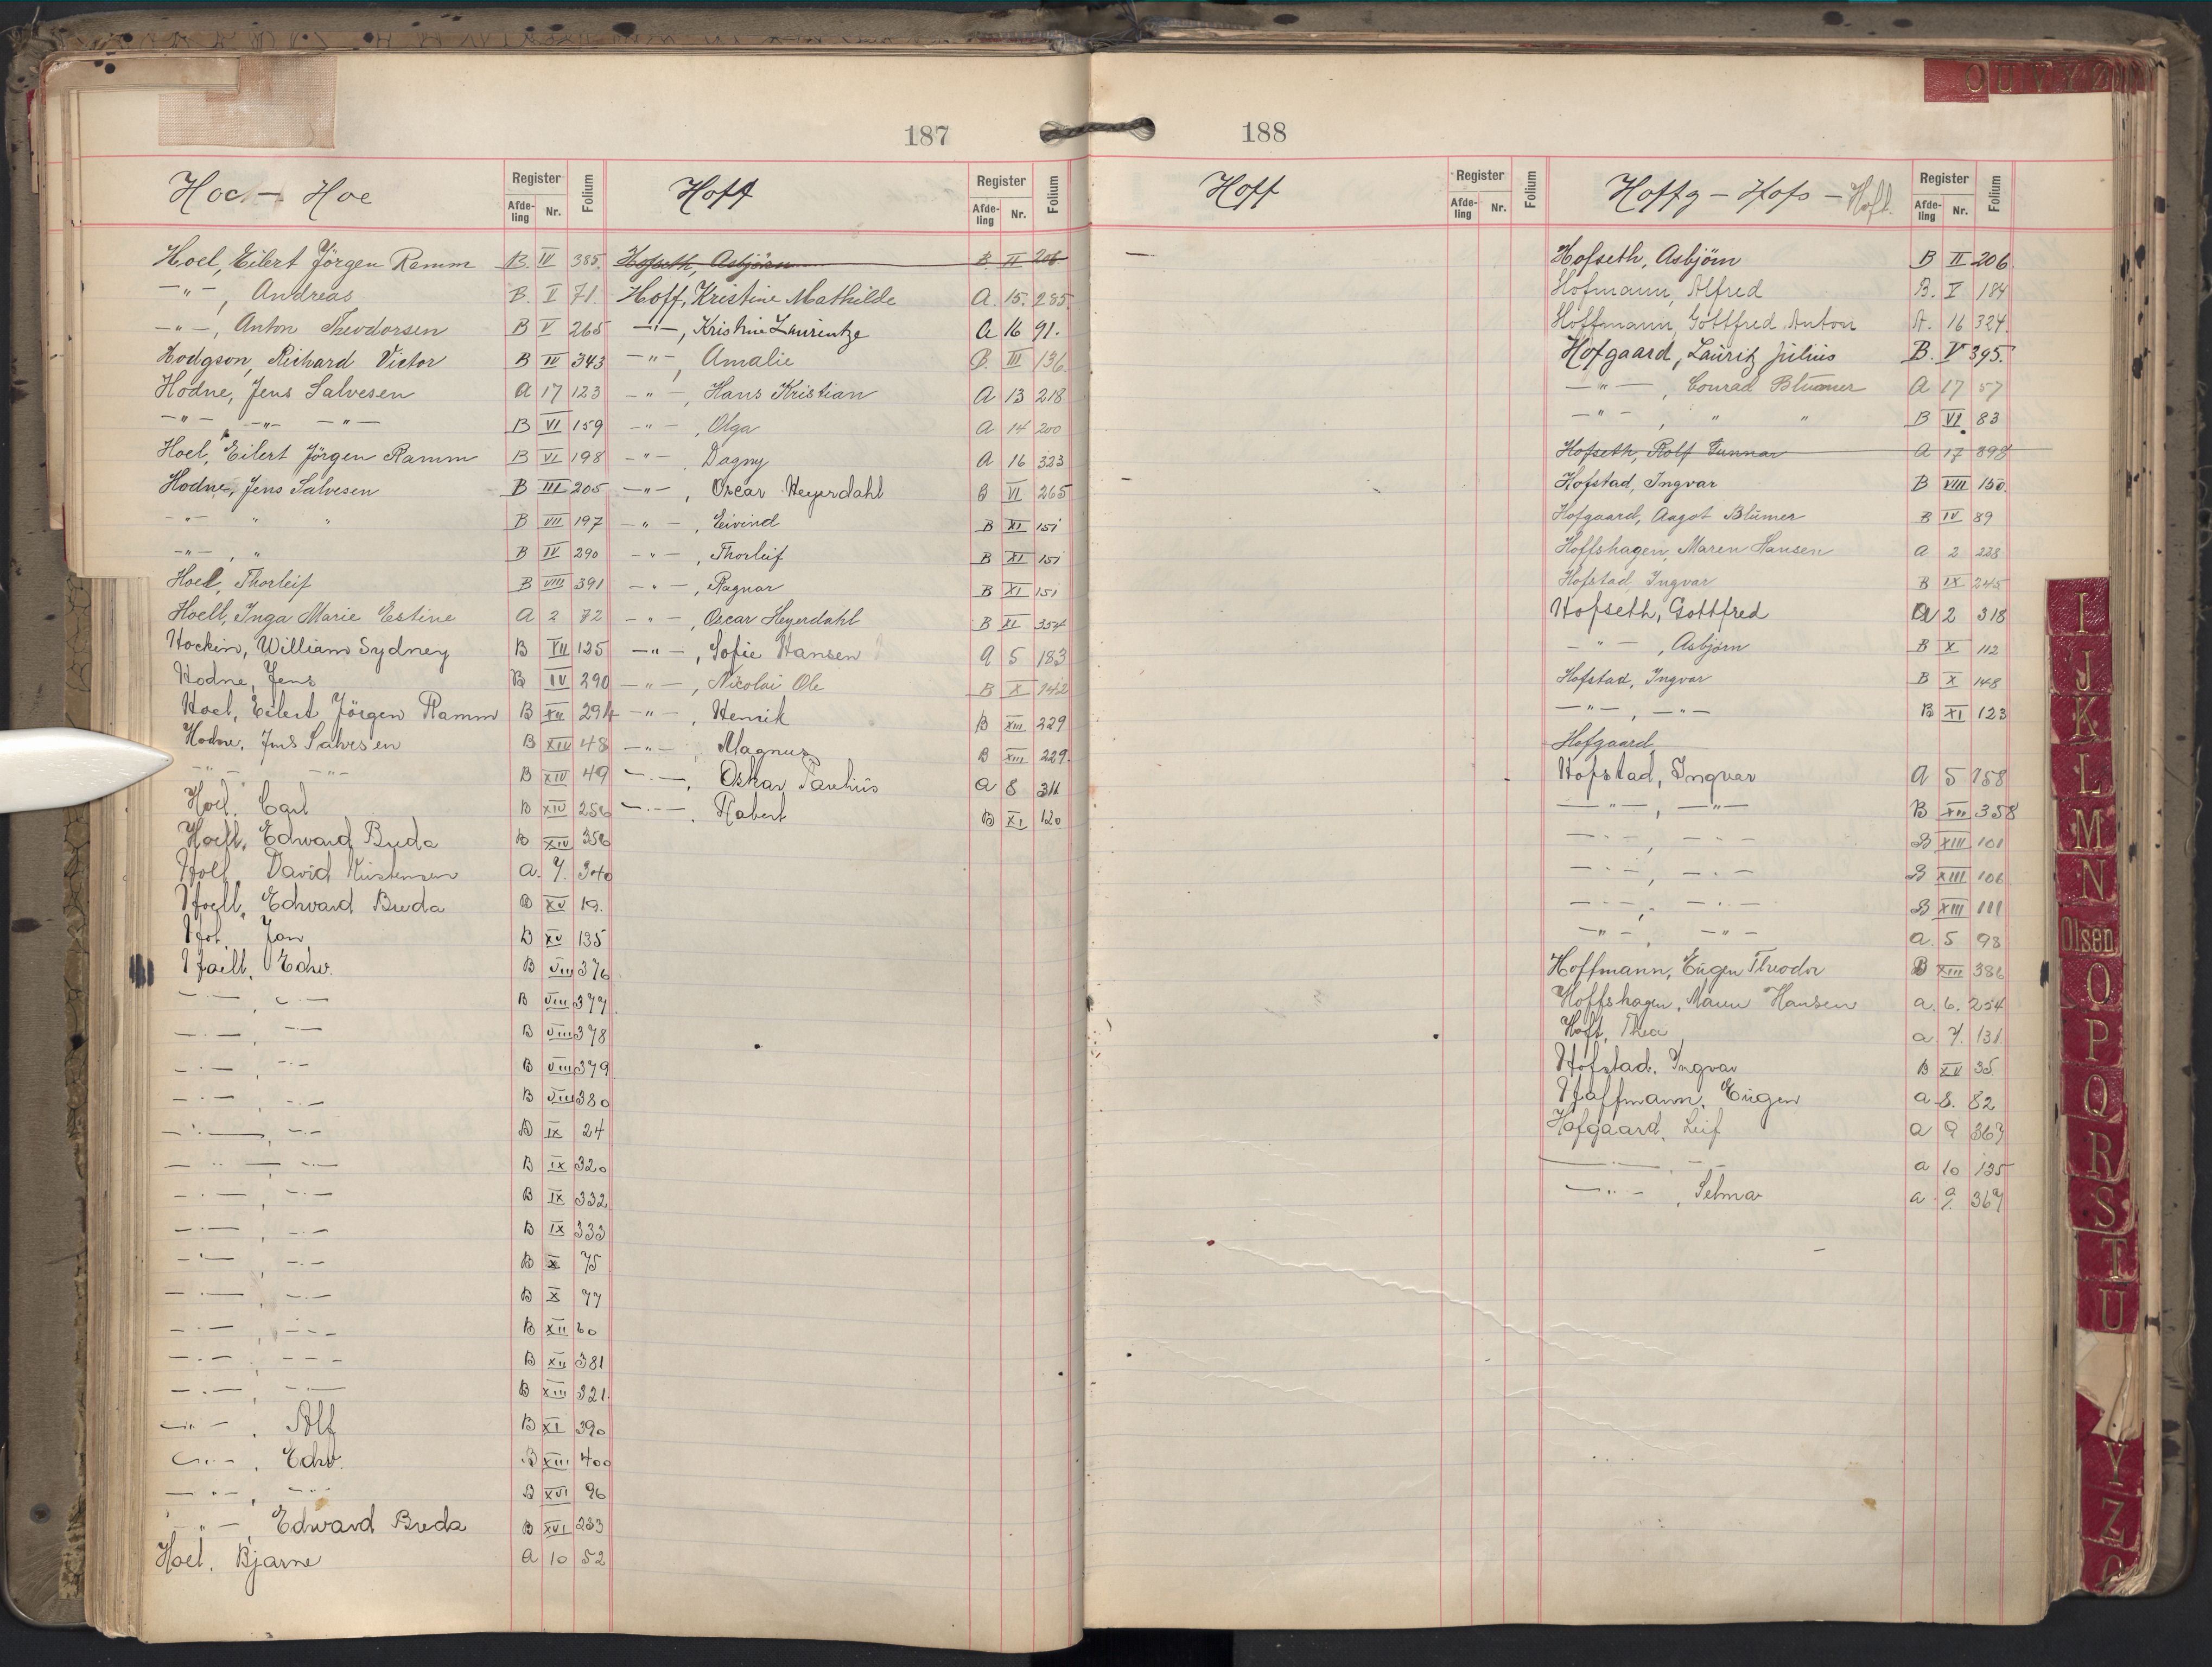 187
Hoc - Hoe Register Afde-ling Nr. Folium
Hoel, Eilert Jörgen Ramm B. IV 385.
-"-, Andreas B. V 71.
-"-, Anton Theodorsen B V 265
Hodgson, Richard Victor B IV 343
Hodne, Jens Salvesen A 17 123
-"- -"- -"- B VI 159
Hoel, Eilert Jörgen Ramm B VI 198
Hodne, Jens Salvesen B III 205
-"- " " B VII 197
-"-, " B IV 290
Hoel, Thorleif B VIII 391
Hoell, Inga Marie Estine A 2 72
Hockin, William Sydney B VII 125
Hodne, Jens B IV 290
Hoel, Eilert Jörgen Ramm B XII 294
Hodne, Jens Salvesen B XIV 48
-"- -"- B XIV 49
Hoel, Carl B XIV 256
Hoell, Edward Breda B XIV 356
David a. 7. 340
Hoell, Edward Breda B XV 19.
Jan B XV 135
Hoell, Edw. B VIII 376
-"-, -"- B VIII 377
-"-, -"- B VIII 378
-"-, -"- B VIII 379
-"-, -"- B VIII 380
-"-, -"- B IX 24
-"-, -"- B IX 320
-"-, -"- B IX 332
-"-, -"- B IX 333
-"-, -"- B X 75
-"-, -"- B X 77
-"-, -"- B XII 60
-"-, -"- B XII 381
-"-, -"- B XIII 321.
-"-, Alf B XI 390
-"-, Edw. B XIII 400
-"-, -"- B XVI 96
-"-, Edward Breda B XVI 233
Hoel, Bjarne a 10 52
Hoff Register Afde-ling Nr. Folium
Hofseth, Asbjörn B. II 206
Hoff, Kristine Mathilde A. 15. 285.
-"-, Kristine Laurentze A 16 91.
-"-, Amalie B. III 136.
-"-, Hans Kristian A 13 218
-"-, Olga A 14 200
-"-, Dagny A 16 323
-"-, Oscar Heyerdahl B VI 265
-"-, Eivind B XI 151
-"-, Thorleif B XI 151
-"-, Ragnar B XI 151
-"-, Oscar Heyerdahl B XI 354
-"-, Sofie Hansen A 5 183
-"-, Nicolai Ole B X 142
-"-, Henrik B XIII 229
-"-, Magnus B XIII 229.
-"-, Oskar a 8 311
-"-, Robert B XI 120
188
Hoff Register Afde-ling Nr. Folium
Hoffg - Hofs - Hoft. Register Afde-ling Nr. Folium
Hofseth, Asbjörn B II 206
Hofmann, Alfred B. V 184
Hoffmann, Gottfred Anton A. 16 324.
Hofgaard, Lauritz Julius B. V 395.
-"-, Conrad Blumer A 17 57
-"-, " " B VI 83
Hofseth, Rolf Gunnar A 17 898
Hofstad, Ingvar B VIII 150.
Hofgaard, Aagot Blumer B IV 89
Hoffshagen, Maren Hansen a 2 228
Hofstad, Ingvar B IX 245
Hofseth, Gottfred A 2 318
-"-, Asbjörn B X 112
Hofstad, Ingvar B X 148
-"-, -"- B XI 123
Hofgaard,
Hofstad, Ingvar A 5 158
-"-, -"- B XII 358
-"-, -"- B XIII 101
-"-, -"- B XIII 106
-"-, -"- B XIII 111
-"- -"- a. 5 98
Hoffmann, Eugen Theodor B XIII 386
Hoffshagen, Maren Hansen a. 6. 254
Hoft, Thea a 7. 131.
Hofstad, Ingvar B XV 35
Hoffmann, Eugen a 8. 82
Hofgaard, Leif a 9 367
-"-, -"- a 10 125
-"-, Selma a 9. 367
O U V Y Z Ø
I
J
K
L
M
N
Olsen
O
P
Q
R
S
T
U
Y
Z